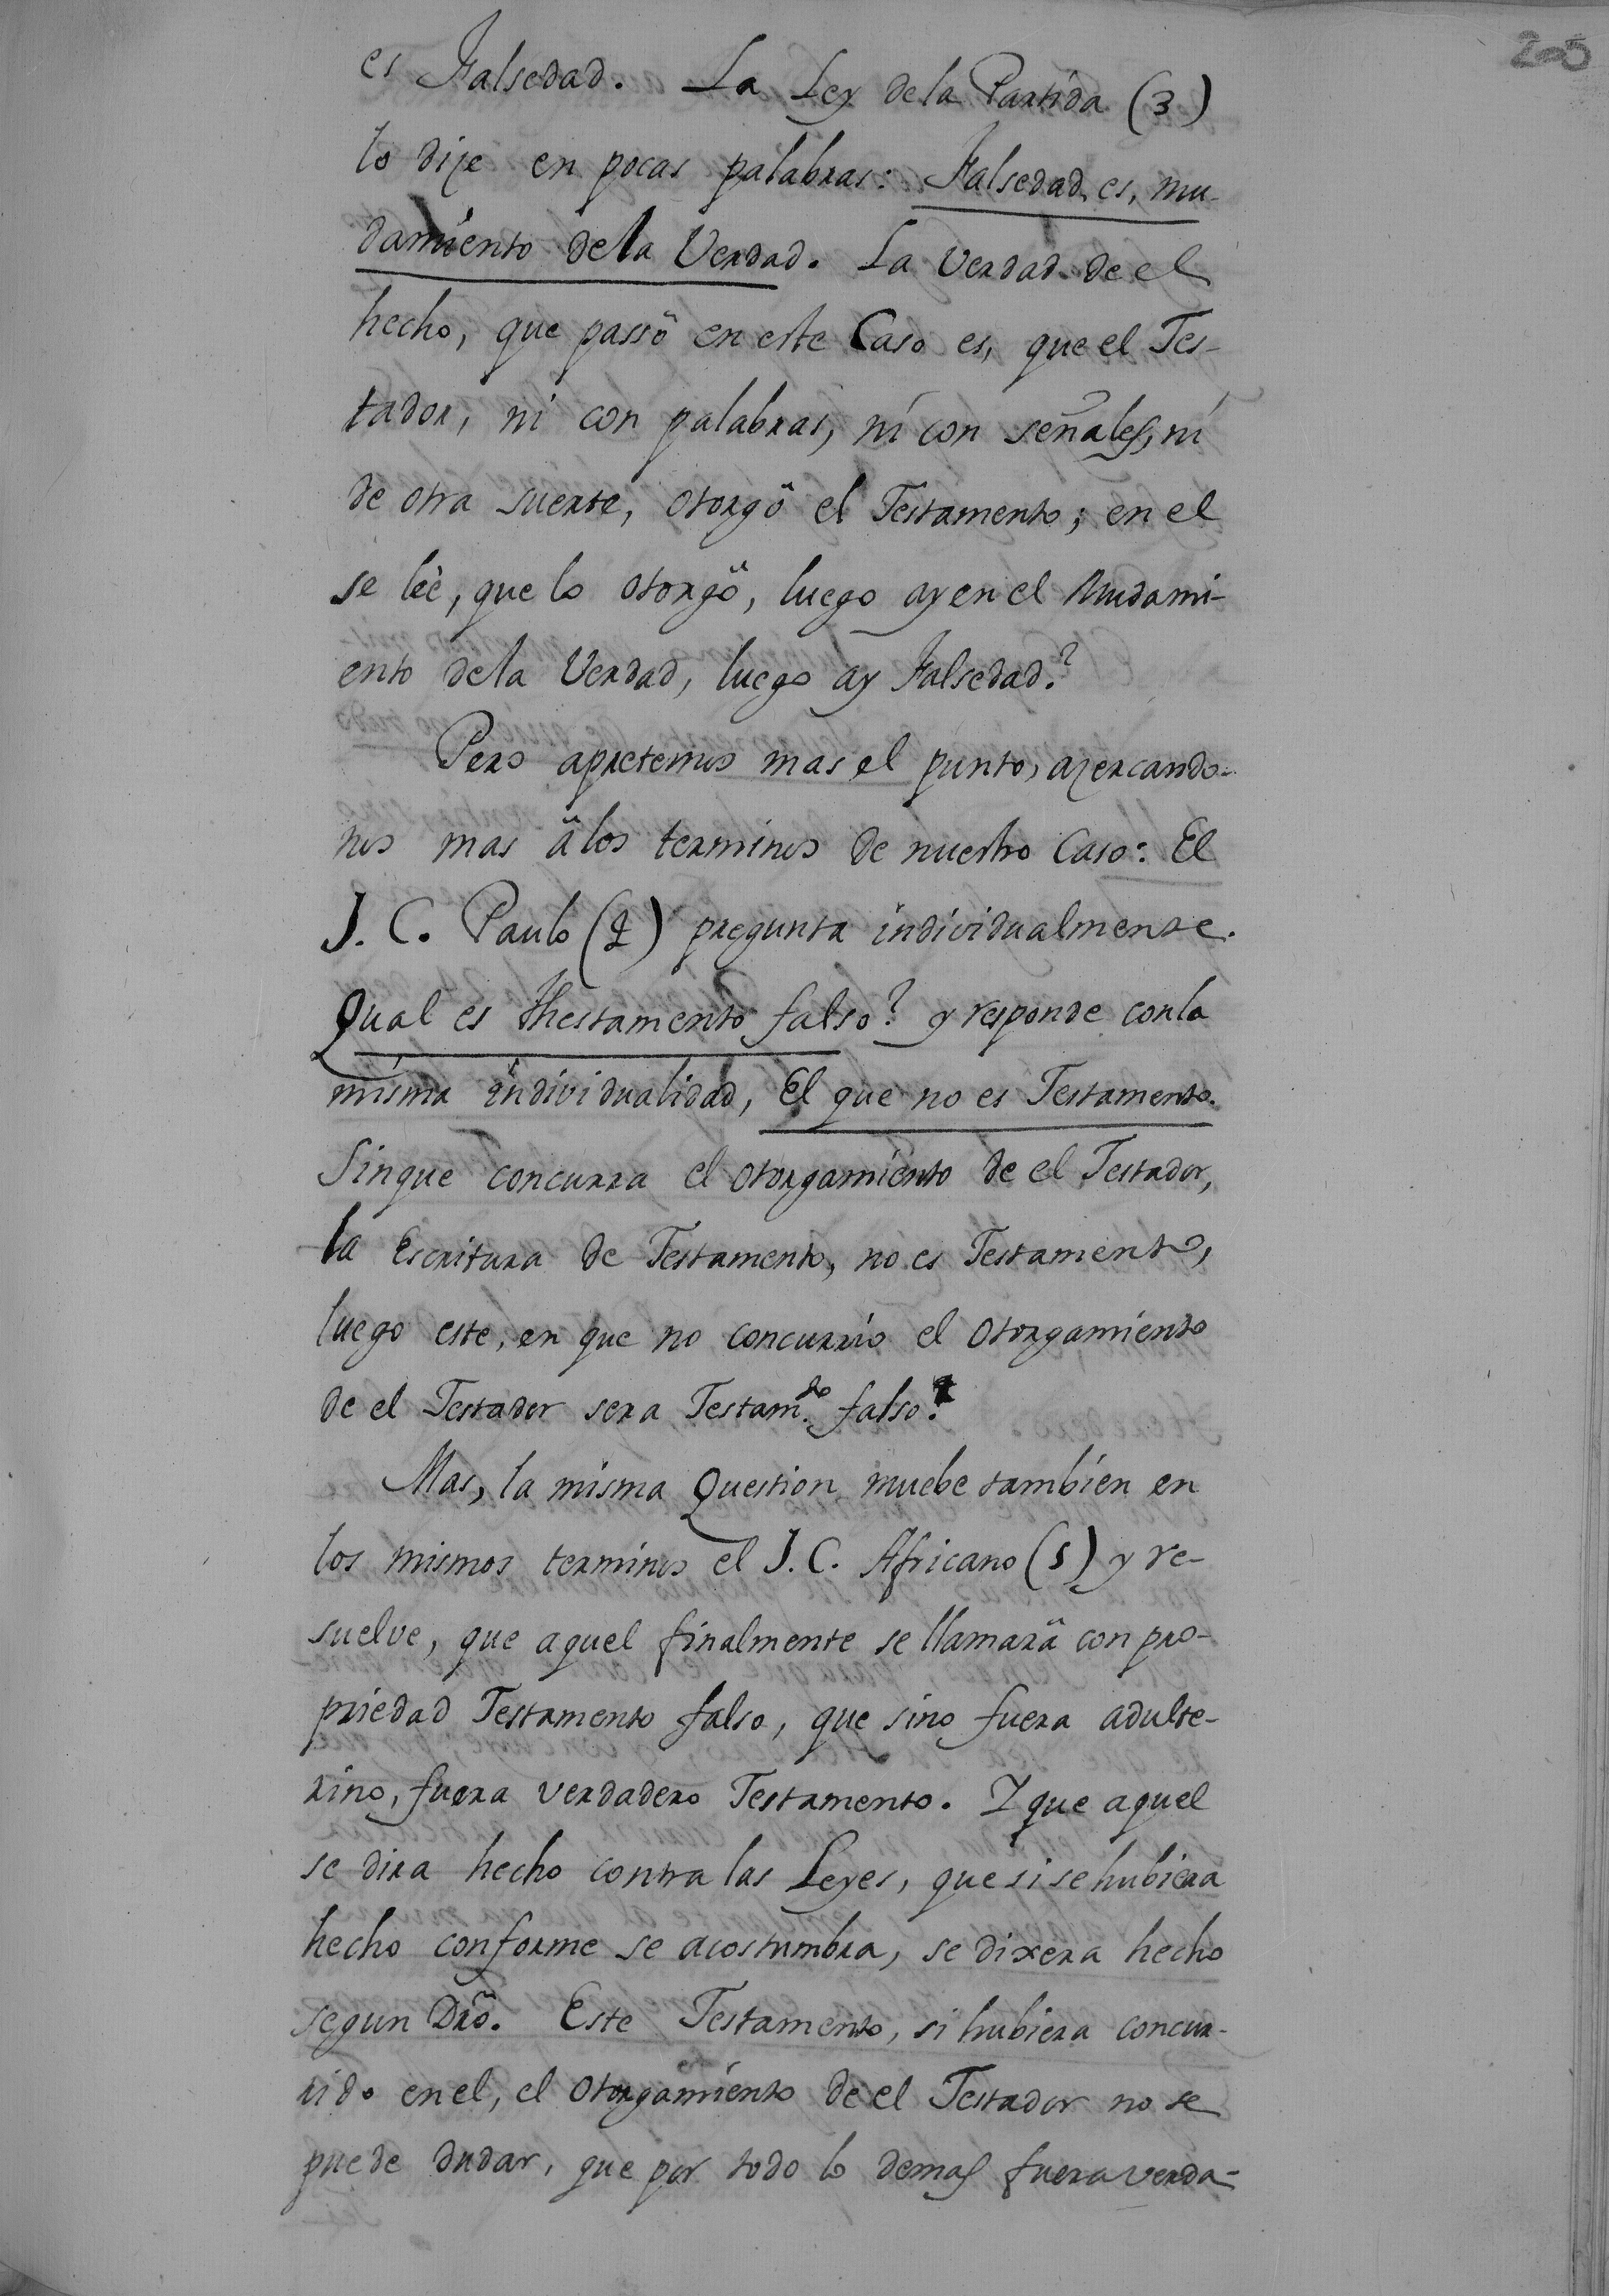 205
es Falsedad. La Ley de la Partida (3)
lo dize en pocas palabras: Falsedad, es, mu-
damiento de la Verdad. La Verdad de el
hecho, que passô en este Caso es, que el Tes-
tador, ni con palabras, ni con señales, ni
de otra suerte, otorgô el Testamento; en el
se leè, que lo otorgô, luego ay en el Mudami-
ento de la Verdad, luego ay Falsedad?
Pero apretemos mas el punto, azercando-
nos mas â los terminos de nuestro Caso: El
J. C. Paulo (4) pregunta individualmente.
Qual es thestamento falso? y responde con la
misma individualidad, El que no es Testamento.
Sin que concurra el otorgamiento de el Testador,
la Escritura de Testamento, no es Testamento,
luego este, en que no concurrio el Otorgamiento
de el Testador sera Testam.to falso?
Mas, la misma Question muebe tambien en
los mismos terminos el J. C. Africano (5) y re-
suelve, que aquel finalmente se llamarâ con pro-
priedad Testamento falso, que sino fuera adulte-
rino, fuera verdadero Testamento. Y que aquel
se dira hecho contra las Leyes, que si se hubiera
hecho conforme se acostumbra, se dixera hecho
segun Drô. Este Testamento, si hubiera concur-
rido en el, el Otorgamiento de el Testador no se
puede dudar, que por todo lo demas fuera verda-